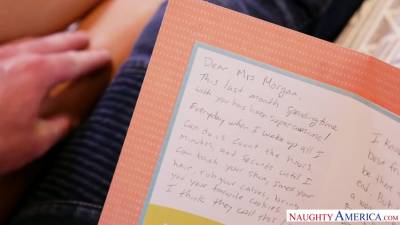 Dear Mrs Morgan,
This last month spending time
with you has been super awesome!
Everyday when I wake up all I
can do is count the hours,
minutes, and seconds until I
can touch your skin, smell your
hair, run your
you your favorite cookies
I think they call this
I know
best frie
be there
end. But
wa
NAUGHTY AMERICA.COM